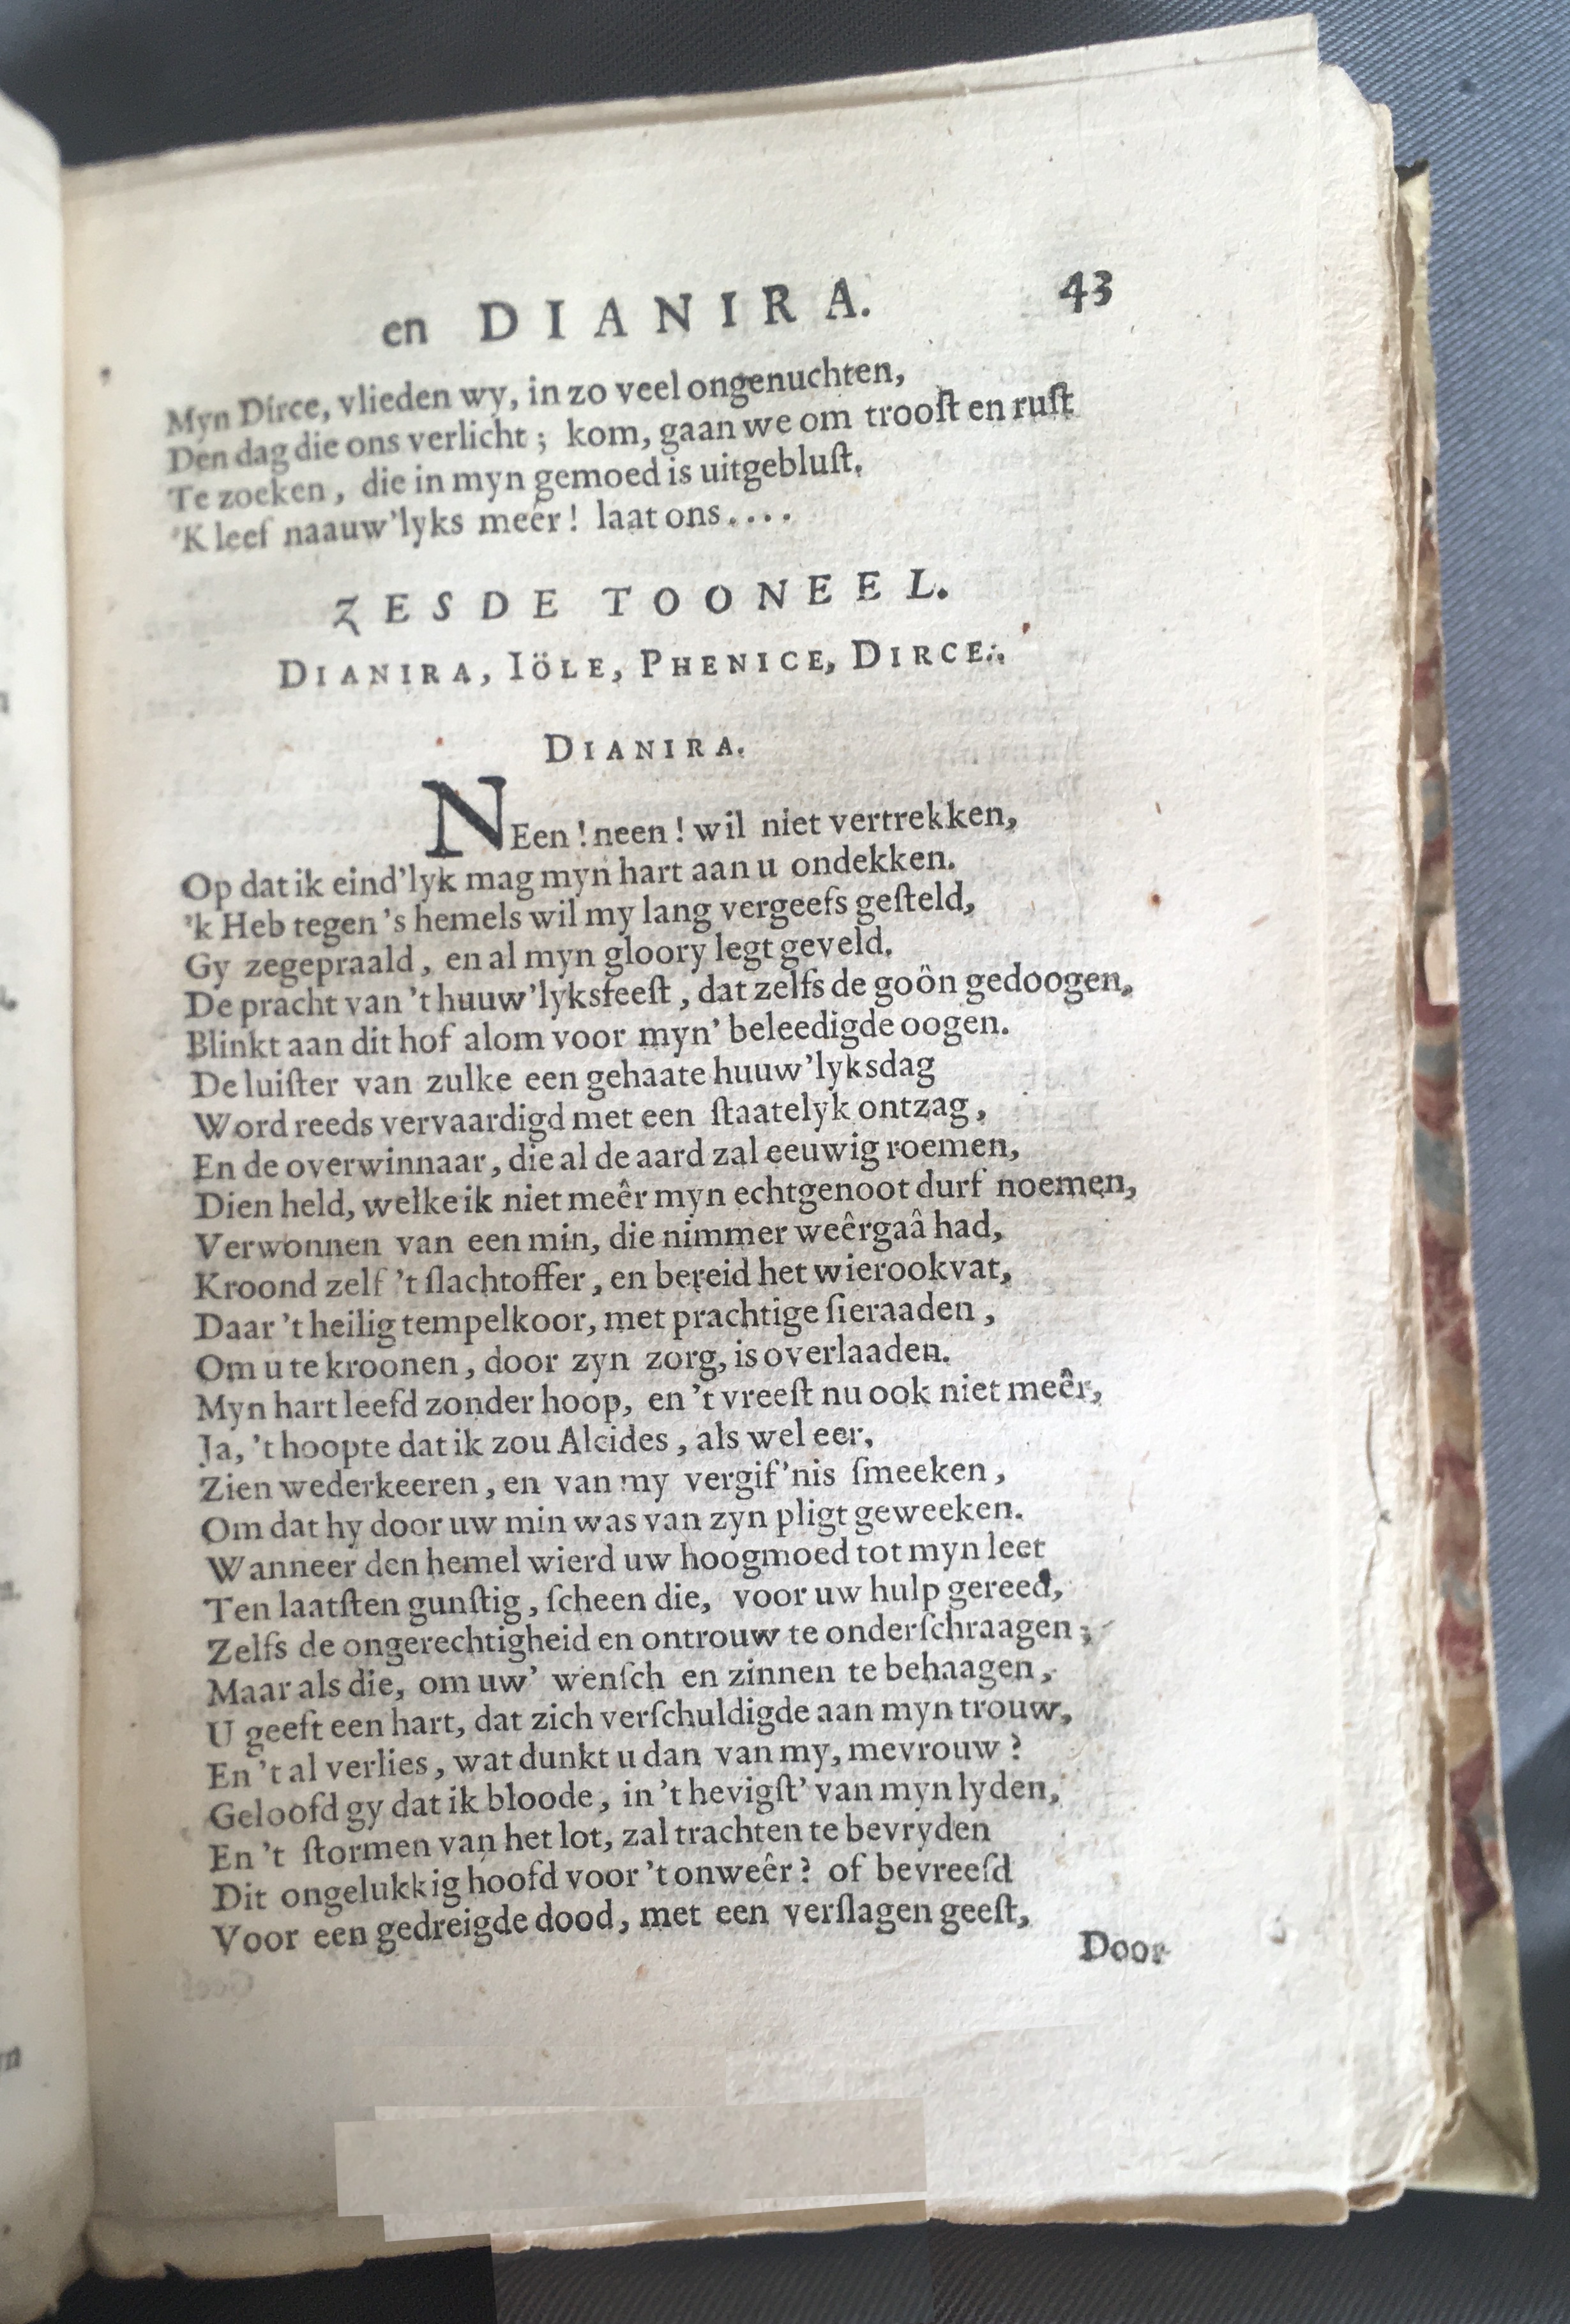 en DIANIRA. 43
Myn Dirce, vlieden wy, in zo veel ongenuchten,
Den dag die ons verlicht; kom, gaan we om trooſt en ruſt
Te zoeken, die in myn gemoed is uitgebluſt.
'K leef naauw'lyks meêr! laat ons....
ZESDE TOONEEL.
DIANIRA, IÖLE, PHENICE, DIRCE.
DIANIRA.
NEen! neen! wil niet vertrekken,
Op dat ik eind'lyk mag myn hart aan u ondekken.
'k Heb tegen 's hemels wil my lang vergeefs geſteld,
Gy zegepraald, en al myn gloory legt geveld.
De pracht van 't huuw'lyksfeeſt, dat zelfs de goôn gedoogen,
Blinkt aan dit hof alom voor myn' beleedigde oogen.
De luiſter van zulke een gehaate huuw'lyksdag
Word reeds vervaardigd met een ſtaatelyk ontzag,
En de overwinnaar, die al de aard zal eeuwig roemen,
Dien held, welke ik niet meêr myn echtgenoot durf noemen,
Verwonnen van een min, die nimmer weêrgaâ had,
Kroond zelf 't ſlachtoffer, en bereid het wierookvat,
Daar 't heilig tempelkoor, met prachtige ſieraaden,
Om u te kroonen, door zyn zorg, is overlaaden.
Myn hart leefd zonder hoop, en 't vreeſt nu ook niet meêr,
Ja, 't hoopte dat ik zou Alcides, als wel eer,
Zien wederkeeren, en van my vergif'nis ſmeeken,
Om dat hy door uw min was van zyn pligt geweeken.
Wanneer den hemel wierd uw hoogmoed tot myn leet
Ten laatſten gunſtig, ſcheen die, voor uw hulp gereed,
Zelfs de ongerechtigheid en ontrouw te onderſchraagen;
Maar als die, om uw' wenſch en zinnen te behaagen,
U geeft een hart, dat zich verſchuldigde aan myn trouw,
En 't al verlies, wat dunkt u dan van my, mevrouw?
Geloofd gy dat ik bloode, in 't hevigſt' van myn lyden,
En 't ſtormen van het lot, zal trachten te bevryden
Dit ongelukkig hoofd voor 't onweêr? of bevreeſd
Voor een gedreigde dood, met een verſlagen geeſt,
Door